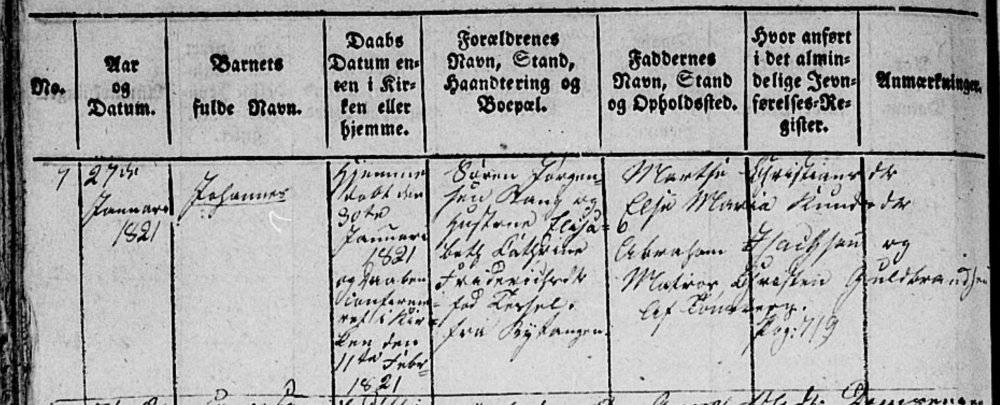 No.
Aar
og
Datum.
Barnets
fulde Navn.
Daabs
Datum en-
ten i Kir-
ken eller
hjemme.
Forældrenes
Navn, Stand,
Haandtering og
Boepæl.
Faddernes
Navn, Stand
og Opholdssted.
Hvor anført
i det almin-
delige Jevn-
førelses-Re-
gister.
Anmærkninger.
7
27de
Januari
1821
Johannes
Hjemme
døbt den
30te
Januari
1821
og Daaben
Confirme-
ret i Kir-
ken den
11te Febr-
1821
Sören Jörgen-
sen og
Hustrue Elisa-
beth Cathrine
fød
fra
Marthe Christians dr
Else Marie Knuds dr
Abraham Isachsen og
Matros Christen Guldbrandsen
af Tönsberg.
Pag: 719